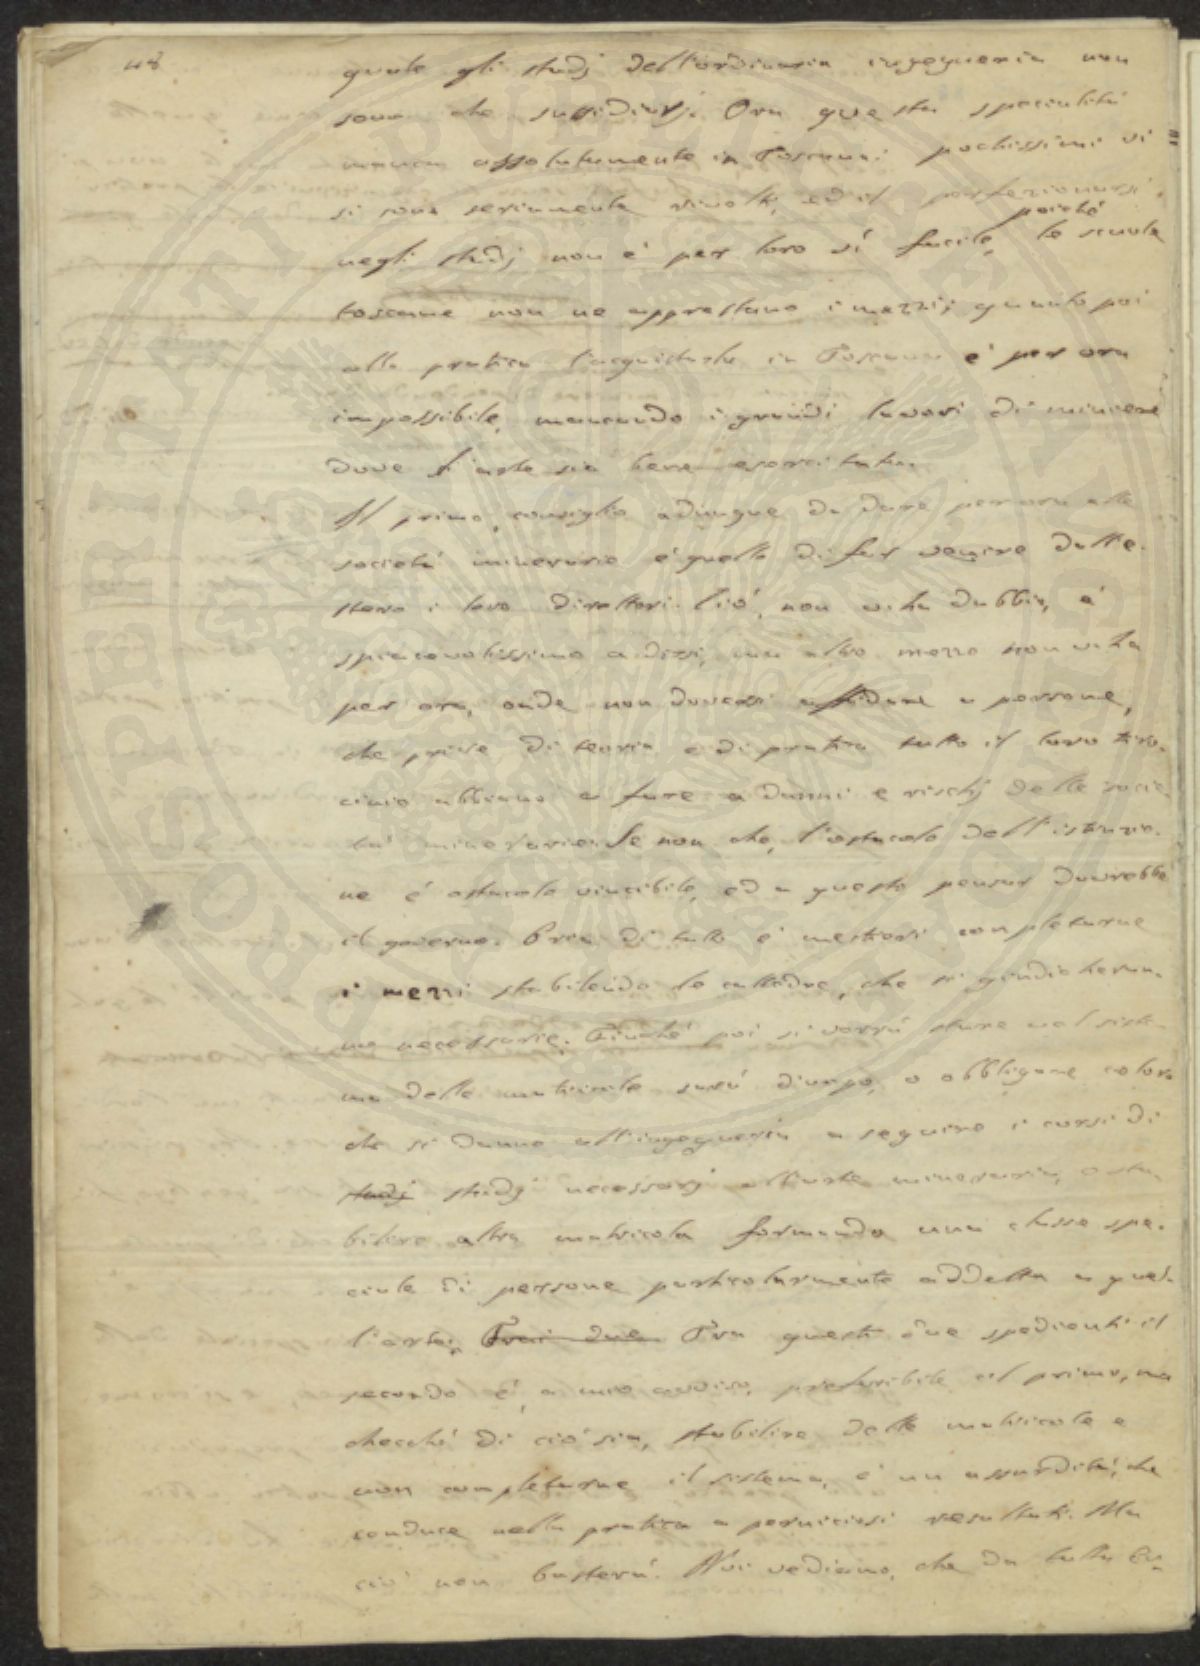 48
quale gli studj dell'ordinaria ingegneria non
sono che sussidiarj. Ora questa specialità
manca assolutamente in Toscana: pochissimi vi
si sono seriamente rivolti, ed il perfezionarsi
poiché
negli studj non è per loro sì facile, le scuole
toscane non ne apprestano i mezzi; quanto poi
alla pratica l'acquistarla in Toscana è per ora
impossibile, mancando i grandi lavori di miniere
dove l'arte sia bene esercitata.
Il primo consiglio adunque da dare per ora alle
società minerarie è quello di far venire dall'e-
stero i loro direttori. Ciò, non vi ha dubbio, è
spiacevolissimo a dirsi, ma altro mezzo non vi ha
per ora, onde non doversi affidare a persone,
che prive di teoria e di pratica tutto il loro tiro-
cinio abbiano a fare a danni e rischj delle socie-
tà minerarie. Se non che, l'ostacolo dell'istruzio-
ne è ostacolo vincibile, ed a questo pensar dovrebbe
il governo. Pria di tutto è mestieri completarne
i mezzi stabilendo le cattedre, che si giudicheran-
no necessarie. Finché poi si vorrà stare nel siste-
ma delle matricole sarà d'uopo, o obbligare coloro
che si danno all'ingegneria a seguire i corsi di
studj studj necessarj all'arte mineraria, o sta-
bilire altra matricola formando una classe spe-
ciale di persone particolarmente addetta a quel-
l'arte. Frai due Fra questi due spedienti il
secondo è, a mio avviso, preferibile al primo, ma
checché di ciò sia, stabilire delle matricole e
non completarne il sistema, è un assurdità, che
conduce nella pratica a perniciosi resultati. Ma
ciò non basterà. Noi vediamo, che da tutta Eu-